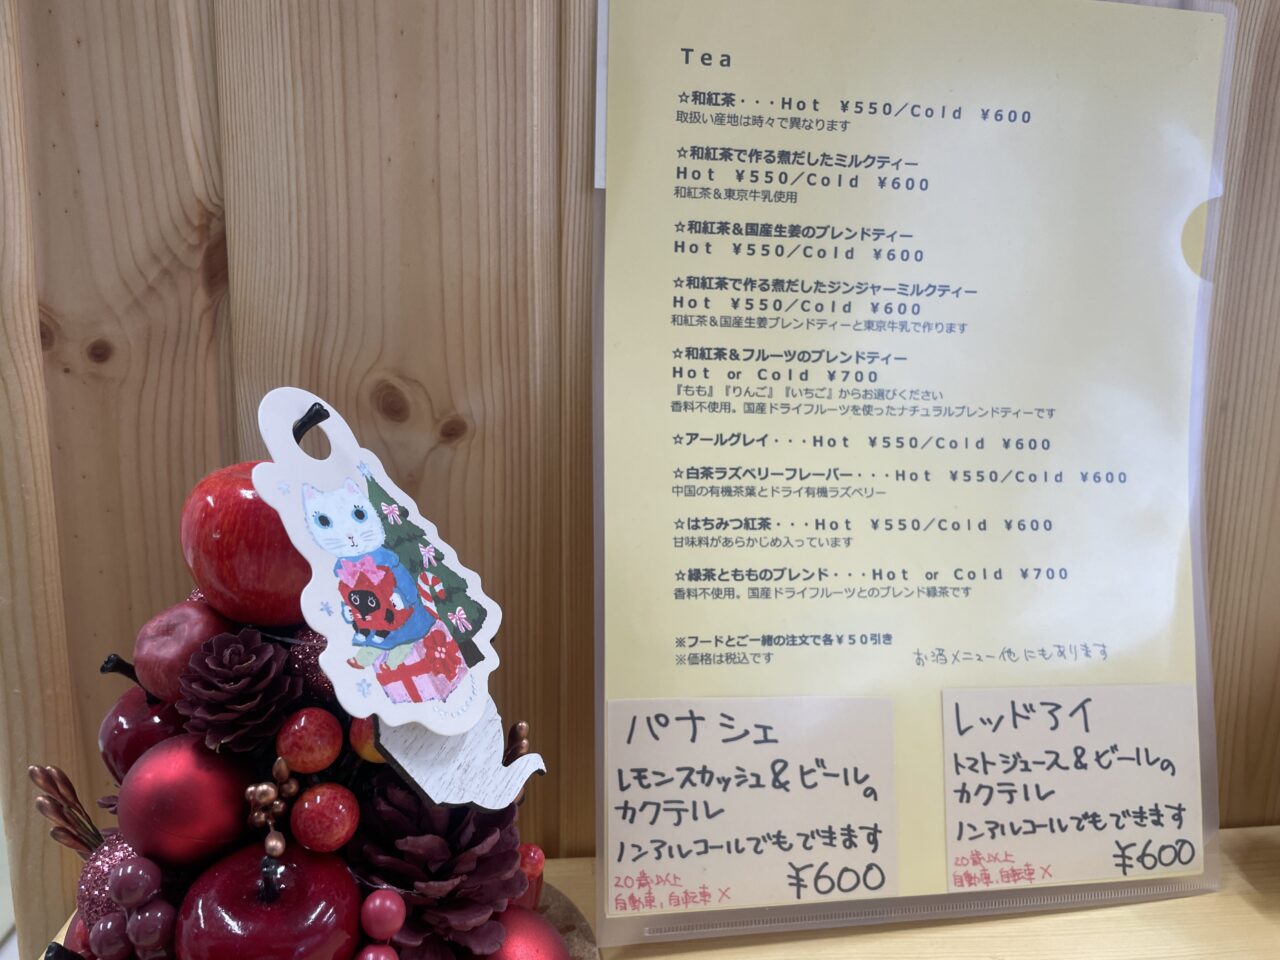 Tea
☆和紅茶・・・Hot ¥550/Cold ¥600
取扱い産地は時々で異なります
☆和紅茶で作る煮だしたミルクティー
Hot ¥550/Cold ¥600
和紅茶＆東京牛乳使用
☆和紅茶＆国産生姜のブレンドティー
Hot ¥550/Cold ¥600
☆和紅茶で作る煮だしたジンジャーミルクティー
Hot ¥550/Cold ¥600
和紅茶＆国産生姜ブレンドティーと東京牛乳で作ります
☆和紅茶＆フルーツのブレンドティー
Hot or Cold ¥700
『もも』『りんご』『いちご』からお選びください
香料不使用。国産ドライフルーツを使ったナチュラルブレンドティーです
☆アールグレイ・・・Hot ¥550/Cold ¥600
☆白茶ラズベリーフレーバー・・・Hot ¥550/Cold ¥600
中国の有機茶葉とドライ有機ラズベリー
☆はちみつ紅茶・・・Hot ¥550/Cold ¥600
甘味料があらかじめ入っています
☆緑茶とももブレンド・・・Hot or Cold ¥700
香料不使用。国産ドライフルーツとのブレンド緑茶です
※フードとご一緒の注文で各¥50引き
※価格は税込です
お酒メニュー他にもあります
パナシェ
レモンスカッシュ&ビールの
カクテル
ノンアルコールでもできます
¥600
20歳以上
自動車、自転車×
レッドアイ
トマトジュース&ビールの
カクテル
ノンアルコールでもできます
¥600
20歳以上
自動車、自転車×